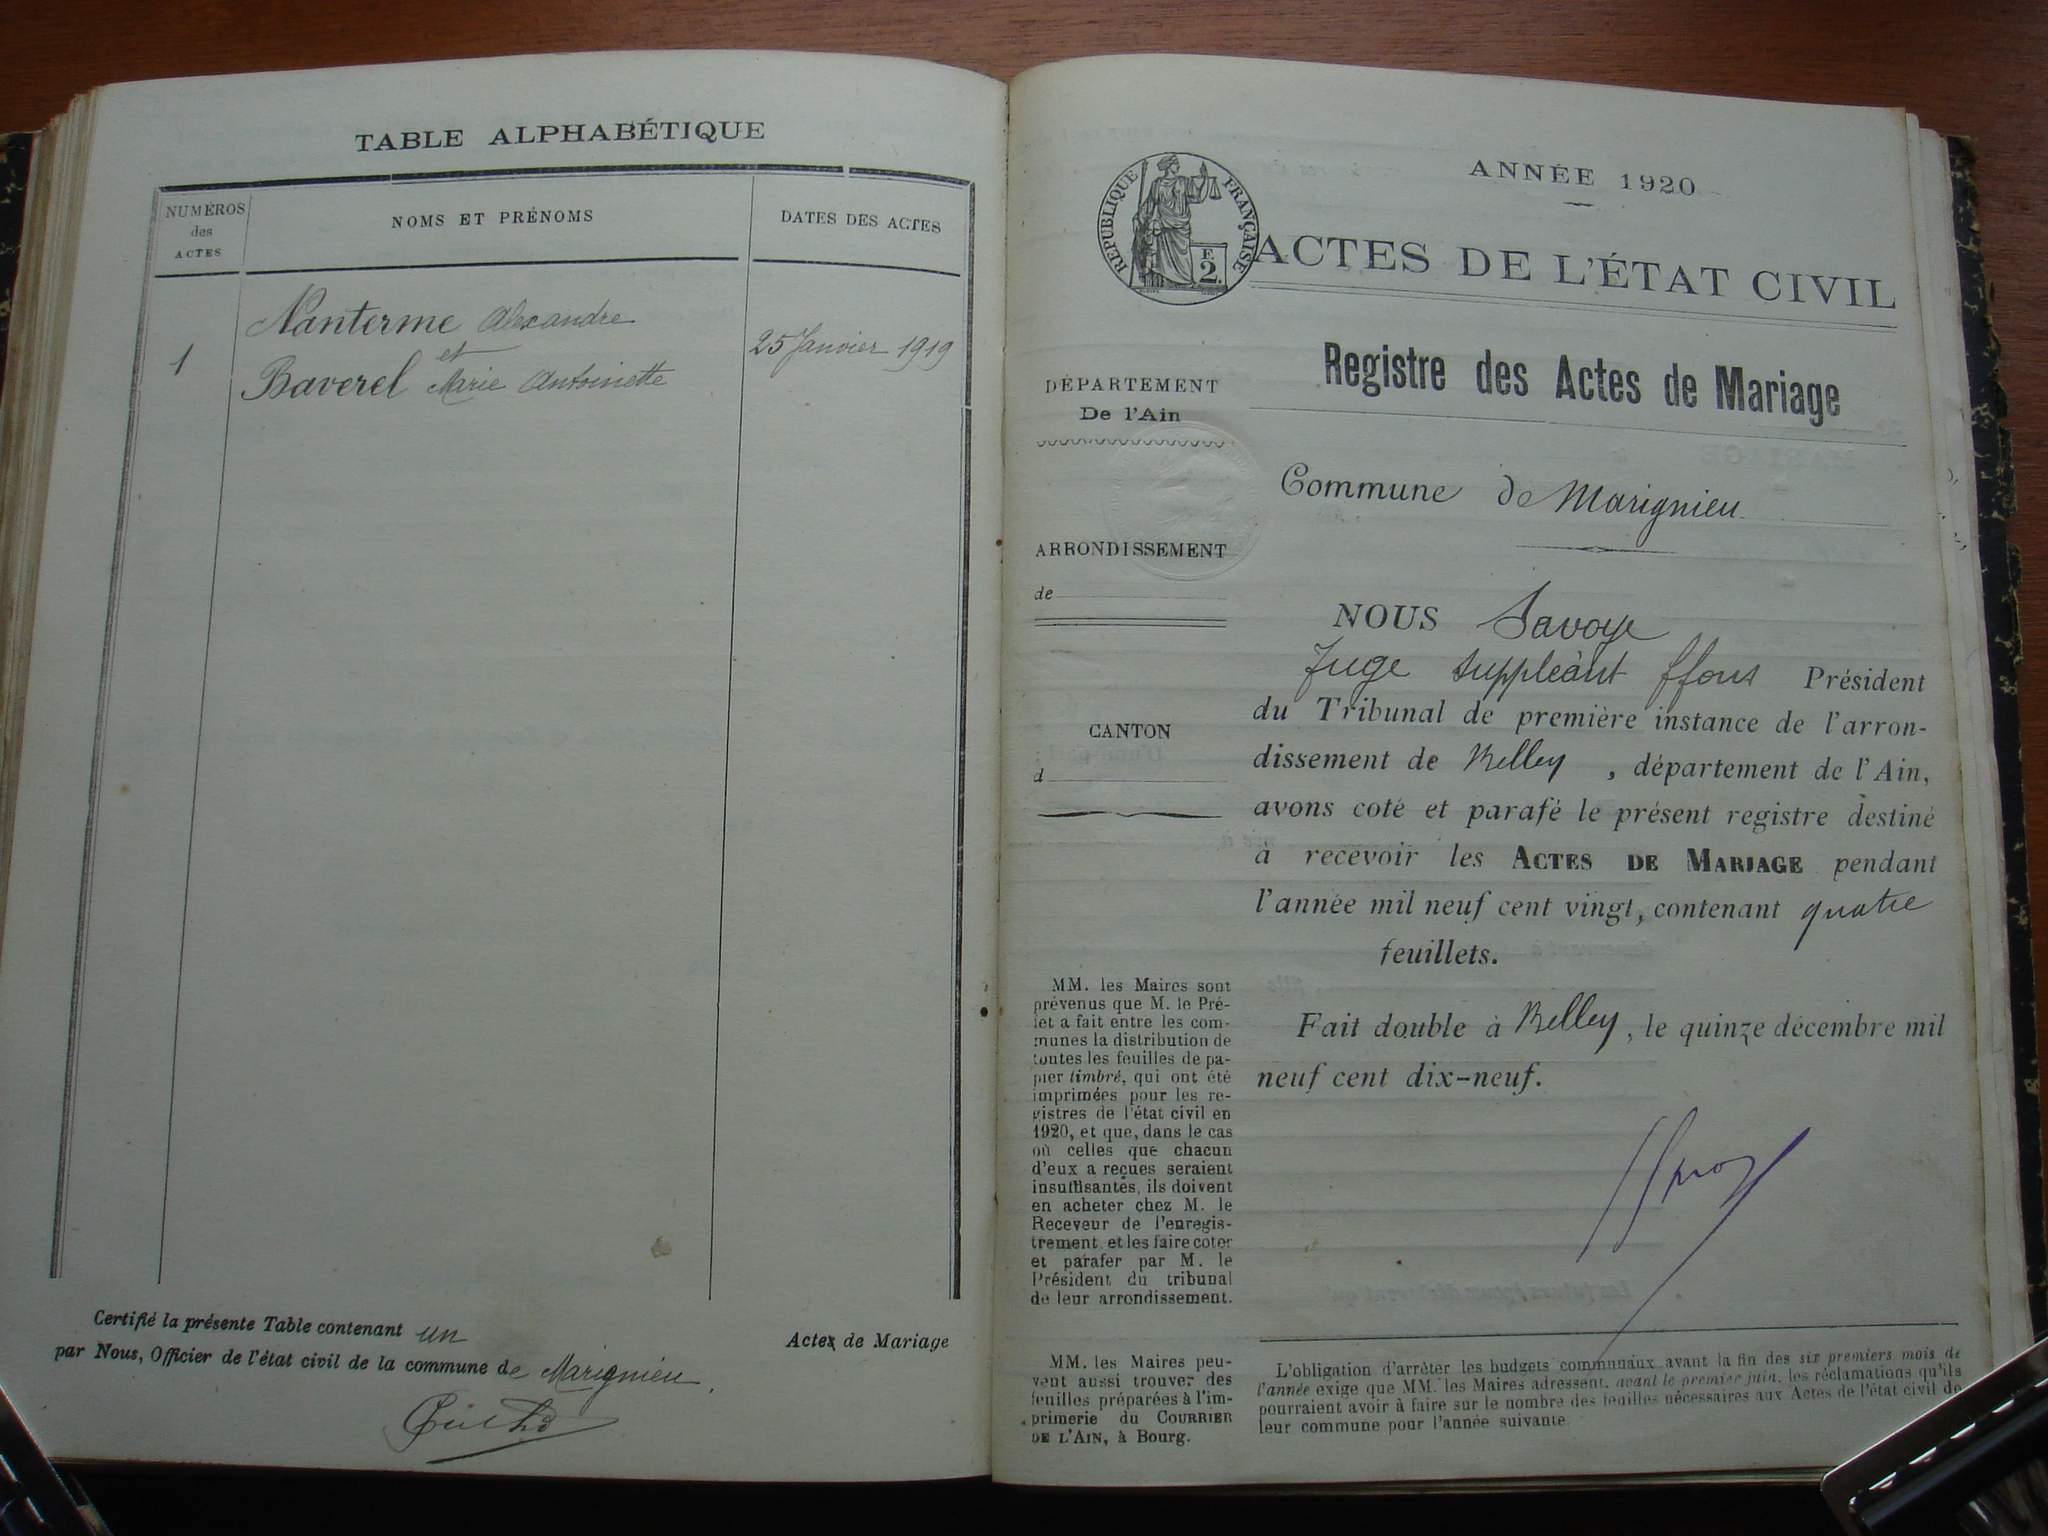 TABLE ALPHABÉTIQUE
NUMÉROS
des
ACTES
NOMS ET PRÉNOMS
DATES DES ACTES
1
Nanterme Alexandre
et
Baverel Marie Antoinette
25 Janvier 1919
Certifié la présente Table contenant un Actes de Mariage
par Nous, Officier de l'état civil de la commune de Marignieu
RÉPUBLIQUE FRANÇAISE
F.
2.
ANNÉE 1920
ACTES DE L'ÉTAT CIVIL
Registre des Actes de Mariage
DÉPARTEMENT
De l'Ain
Commune de Marignieu
ARRONDISSEMENT
de
CANTON
d
NOUS Savoye
Juge suppléant ffons Président
du Tribunal de première instance de l'arron-
dissement de Belley, département de l'Ain,
avons coté et parafé le présent registre destiné
à recevoir les ACTES DE MARIAGE pendant
l'année mil neuf cent vingt, contenant quatre
feuillets.
Fait double à Belley, le quinze décembre mil
neuf cent dix-neuf.
MM. les Maires sont
prévenus que M. le Pré-
fet a fait entre les com-
munes la distribution de
toutes les feuilles de pa-
pier timbré, qui ont été
imprimées pour les re-
gistres de l'état civil en
1920, et que, dans le cas
où celles que chacun
d'eux a reçues seraient
insuffisantes, ils doivent
en acheter chez M. le
Receveur de l'enregis-
trement et les faire coter
et parafer par M. le
Président du tribunal
de leur arrondissement.
MM. les Maires peu-
vent aussi trouver des
feuilles préparées à l'im-
primerie du COURRIER
DE L'AIN, à Bourg.
L'obligation d'arrêter les budgets communaux avant la fin des six premiers mois de
l'année exige que MM. les Maires adressent, avant le premier juin, les réclamations qu'ils
pourraient avoir à faire sur le nombre des feuilles nécessaires aux Actes de l'état civil de
leur commune pour l'année suivante